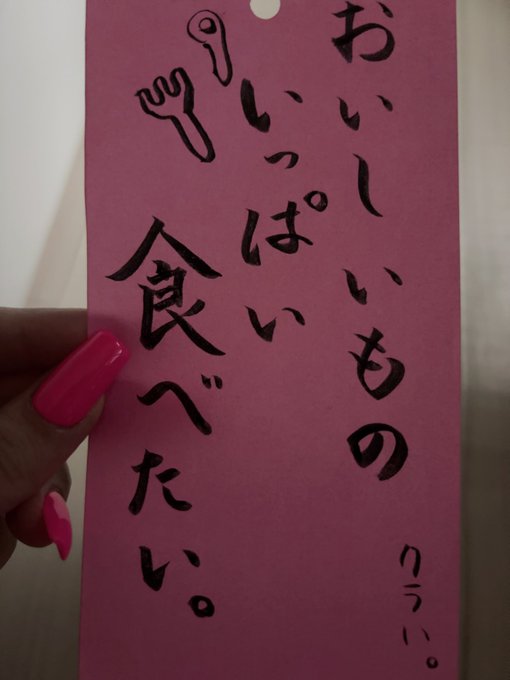 おいしいもの
いっぱい
食べたい。
クラい。